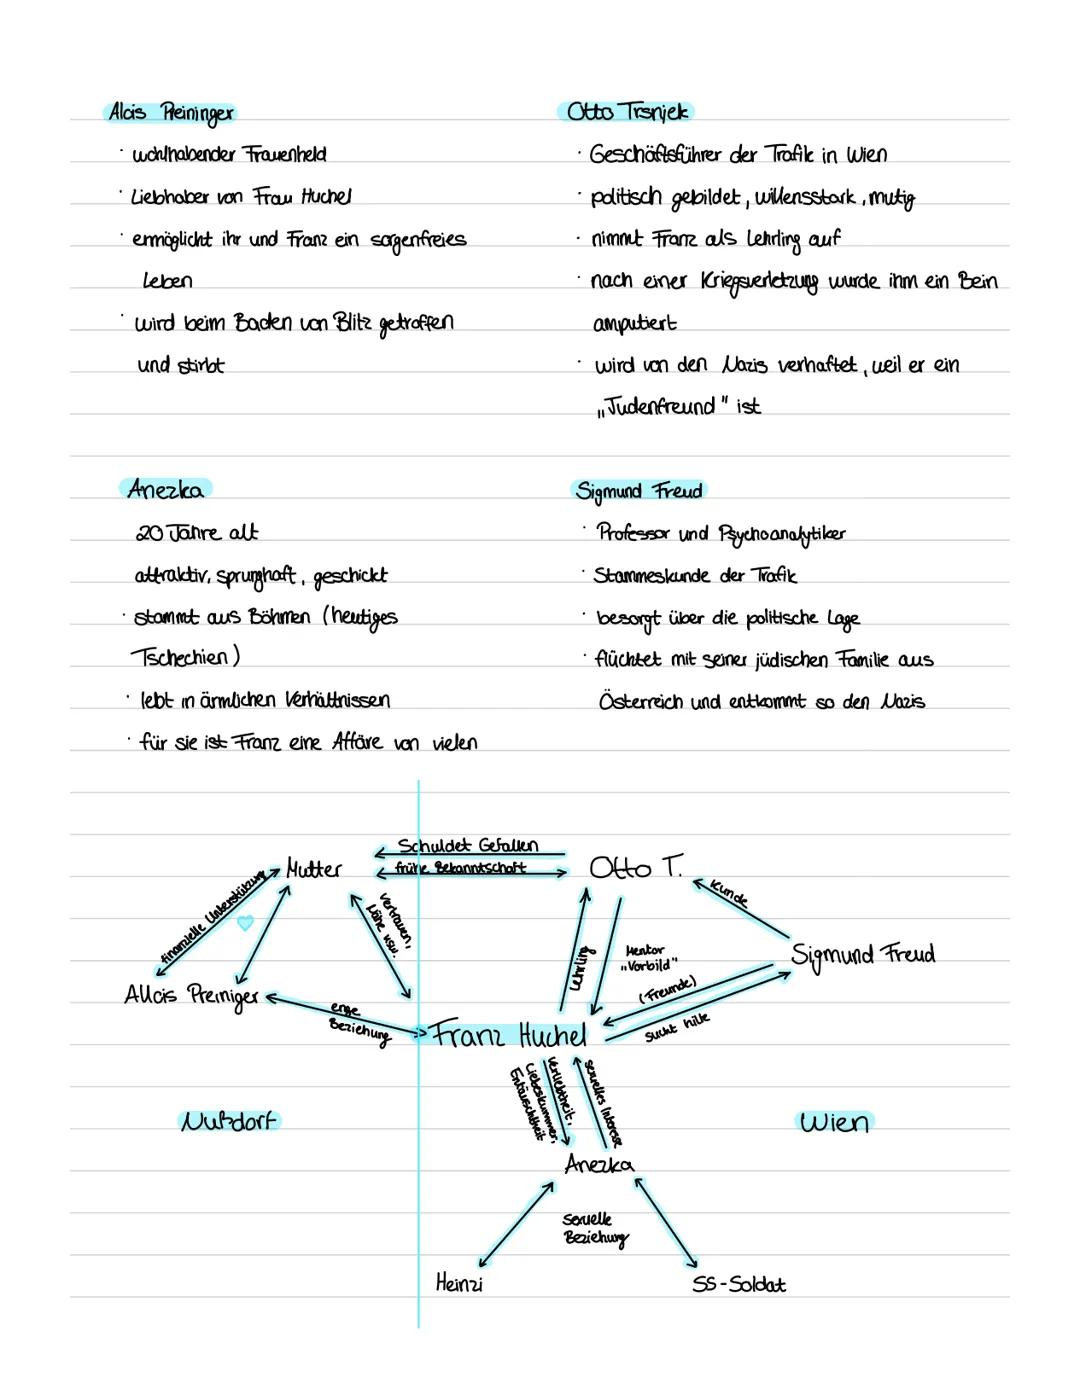 Alois Preininger
· wohlhabender Frauenheld
· Liebhaber von Frau Huchel
· ermöglicht ihr und Franz ein sorgenfreies
Leben
· wird beim Baden von Blitz getroffen
und stirbt
Otto Trsnjek
· Geschäftsführer der Trafik in Wien
· politisch gebildet, willensstark, mutig
· nimmt Franz als Lehrling auf
· nach einer Kriegsverletzung wurde ihm ein Bein
amputiert
· wird von den Nazis verhaftet, weil er ein
„Judenfreund" ist
Anezka
20 Jahre alt
attraktiv, sprunghaft, geschickt
· stammt aus Böhmen (heutiges
Tschechien)
· lebt in ärmlichen Verhältnissen
· für sie ist Franz eine Affäre von vielen
Sigmund Freud
· Professor und Psychoanalytiker
· Stammeskunde der Trafik
· besorgt über die politische Lage
· flüchtet mit seiner jüdischen Familie aus
Österreich und entkommt so den Nazis
Schuldet Gefallen
Mutter
frühe Bekanntschaft
Otto T.
Kunde
finanzielle Unterstützung
Vertrauen,
Nähe usw.
Lehrling
Mentor
„Vorbild"
Sigmund Freud
(Freunde)
Allois Preiniger
enge
Beziehung
Franz Huchel
sucht hilfe
Verliebtheit,
Liebeskummer,
Entäuschtheit
sexuelles Interesse
Nußdorf
Wien
Anezka
Sexuelle
Beziehung
Heinzi
SS-Soldat